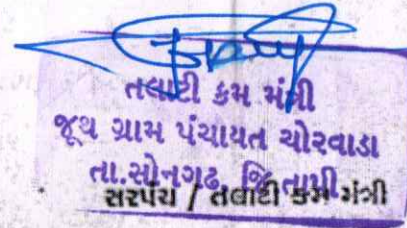 તલાટી કમ મંત્રી
જૂથ ગ્રામ પંચાયત ચોરવાડા
તા.સોનગઢ, જિ.તાપી
સરપંચ / તલાટી કમ મંત્રી